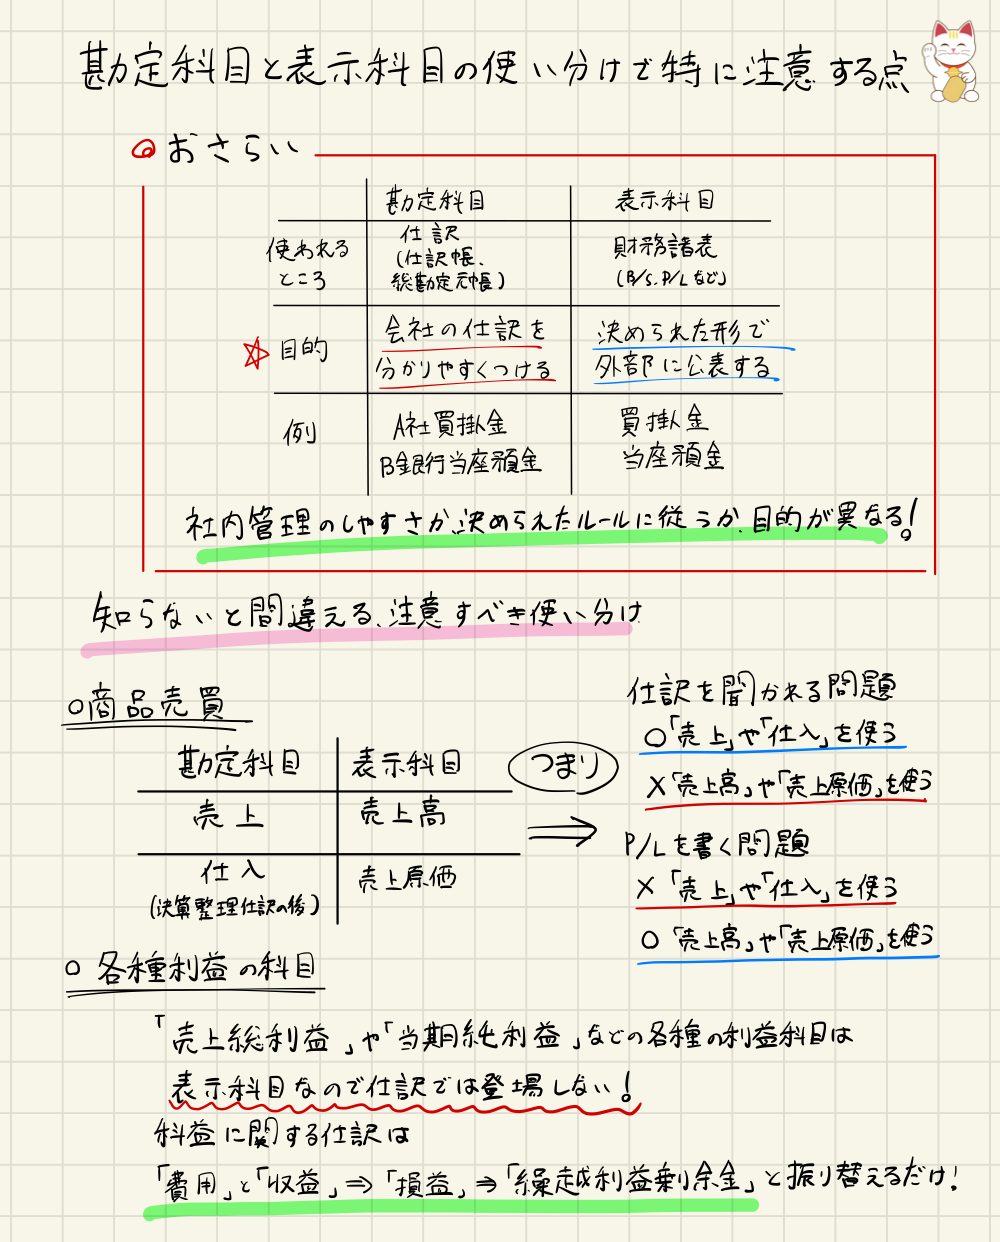 勘定科目と表示科目の使い分けで特に注意する点
おさらい
勘定科目 表示科目
使われる
ところ
仕訳
(仕訳帳、
総勘定元帳)
財務諸表
(B/S、P/Lなど)
目的
会社の仕訳を
分かりやすくつける
決められた形で
外部に公表する
例
A社買掛金
B銀行当座預金
買掛金
当座預金
社内管理のしやすさか、決められたルールに従うか、目的が異なる!
知らないと間違える、注意すべき使い分け
○商品売買
勘定科目 表示科目
売上 売上高
仕入
(決算整理仕訳の後)
売上原価
つまり
⇒
仕訳を聞かれる問題
○「売上」や「仕入」を使う
×「売上高」や「売上原価」を使う
P/Lを書く問題
×「売上」や「仕入」を使う
○「売上高」や「売上原価」を使う
○各種利益の科目
「売上総利益」や「当期純利益」などの各種の利益科目は
表示科目なので仕訳では登場しない!
科益に関する仕訳は
「費用」と「収益」⇒「損益」⇒「繰越利益剰余金」と振り替えるだけ!